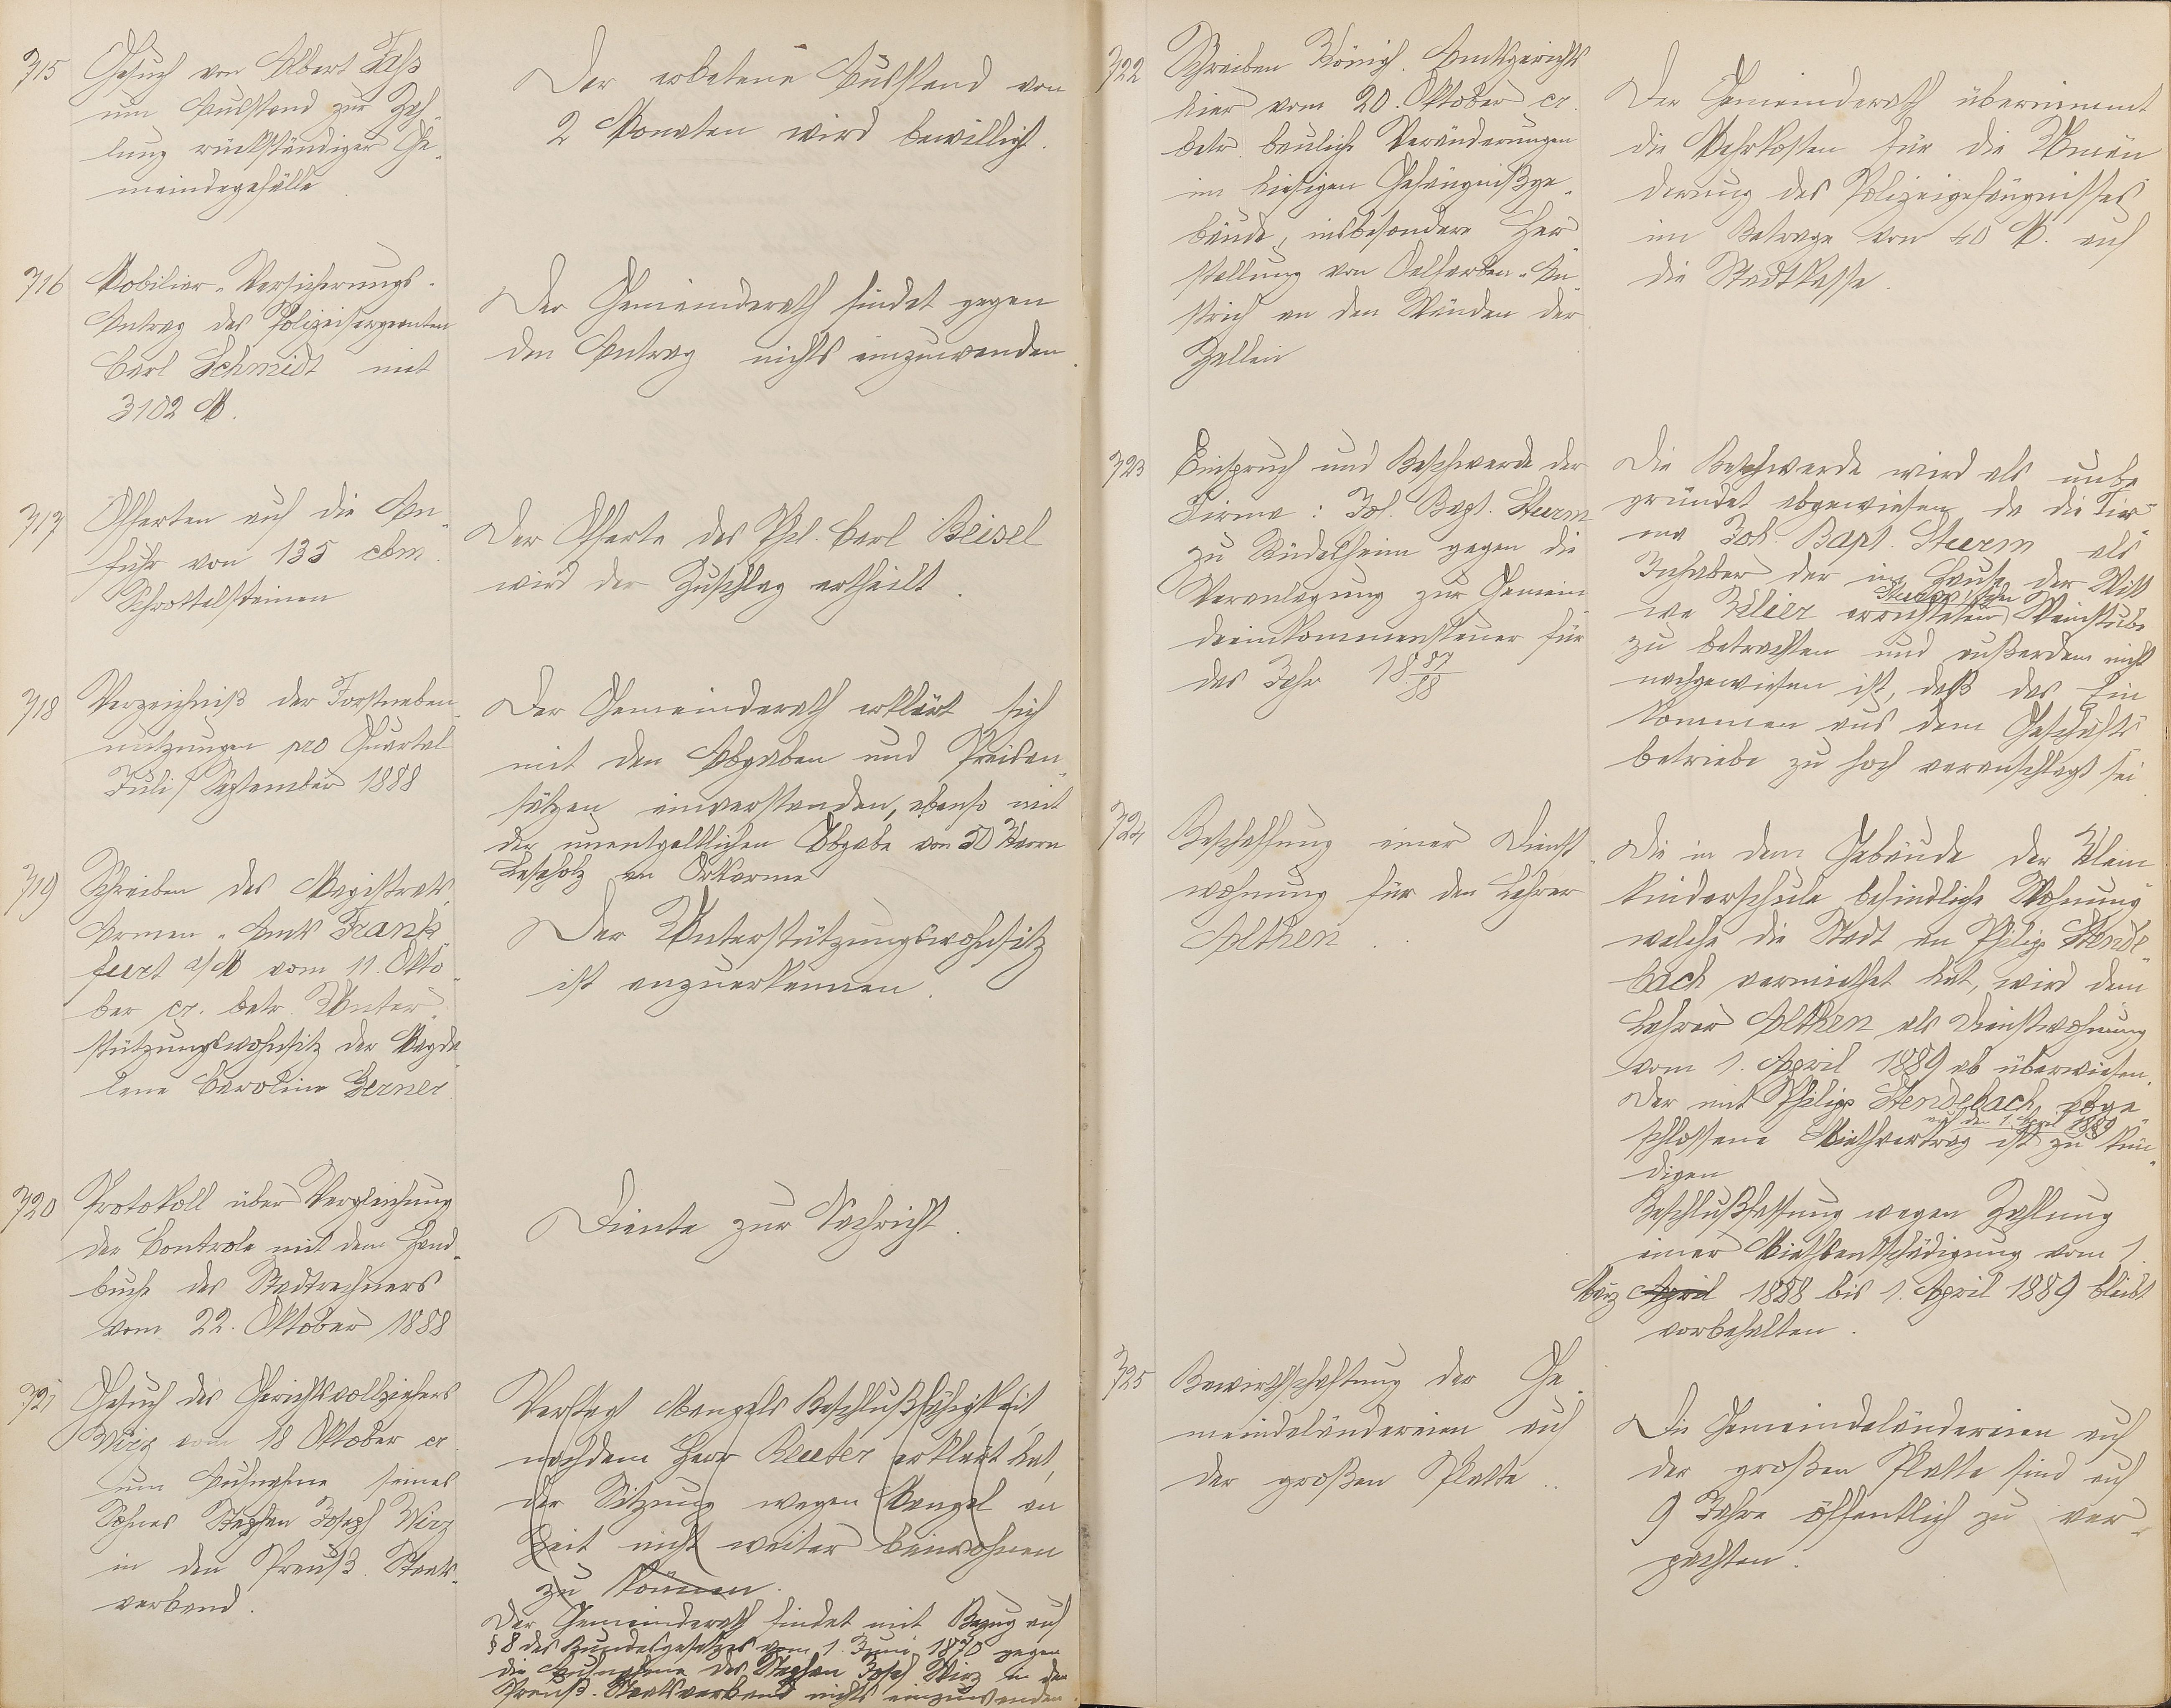 715
Gesuch von Albert Faß
um Ausstand zur Zah-
lung rückständiger Ge-
meindegefälle
Der erbetene Ausstand von
2 Monaten wird bewilligt.
716
Mobiliar-Versicherungs-
Antrag des Polizeisergeanten
Carl Schmidt mit
3102 M.
Der Gemeinderath findet gegen
den Antrag nichts einzuwenden.
717
Offerten auf die An-
fuhr von 135 cbm.
Schrottelsteinen
Der Offerte des Phil. Carl Beisel
wird der Zuschlag ertheilt.
718
Verzeichniß der Forstneben-
nutzungen pro Quartal
Juli/September 1888
Der Gemeinderath erklärt sich
mit den Abgaben und Preisan-
sätzen einverstanden, ebenso mit
der unentgeltlichen Abgabe von 50
Leseholz an Ortsarme
719
Schreiben des Magistrats,
Armen-Amt Frank-
furt a/M vom 11. Okto-
ber cr. betr. Unter-
stützungswohnsitz der Magda-
lene Caroline Gerner
Der Unterstützungswohnsitz
ist anzuerkennen.
720
Protokoll über Vergleichung
der Controle mit dem Hand-
buche des Stadtrechners
vom 22. Oktober 1888
Diente zur Nachricht.
721
Gesuch des Gerichtsvollziehers
Wirz vom 18 Oktober cr
um Aufnahme seines
Sohnes Stephan Joseph Wirz
in den Preuß. Staats-
verband.
Vertagt Mangels Beschlußfähigkeit,
nachdem Herr Reuter erklärt hat,
der Sitzung wegen Mangel an
Zeit nicht weiter beiwohnen
zu können.
Der Gemeinderath findet mit Bezug auf
§ 8 des Bundesgesetzes vom 1. Juni 1870 gegen
die Aufnahme des Stephan Josef Wirz in den
Preuß. Staatsverband nichts einzuwenden
722
Schreiben Königl. Amtsgerichts
hier vom 20. Oktober cr.
betr. bauliche Veränderungen
im hiesigen Gefängnißge-
bäude, insbesondere Her-
stellung von Oelfarben-An-
strich an den Wänden der
Zellen
Der Gemeinderath übernimmt
die Mehrkosten für die
des Polizeigefängnisses
im Betrage von 40 M. auf
die Stadtkasse.
723
Einspruch und Beschwerde der
Firma: Joh. Bapt. Sturm
zu Rüdesheim gegen die
Veranlagung zur Gemein-
deeinkommensteuer für
das Jahr 1887/88
Die Beschwerde wird als unbe-
gründet abgewiesen, da die Fir-
ma Joh. Bapt. Sturm als
Inhaber der im Hause der Witt-
we Klier errichteten Sturm'schen Weinstube
zu betrachten und außerdem nicht
nachgewiesen ist, daß das Ein-
kommen aus dem Geschäfts-
betriebe zu hoch veranschlagt sei.
724
Beschaffung einer Dienst-
wohnung für den Lehrer
Althen.
Die in dem Gebäude der Klein-
kinderschule befindliche Wohnung
welche die Stadt an Philipp Stende-
bach vermiethet hat, wird dem
Lehrer Althen als Dienstwohnung
vom 1. April 1889 ab überwiesen.
Der mit Philipp Stendebach abge-
schlossene Miethvertrag ist auf den 1. April 1889 zu kün-
digen
Beschlußfassung wegen Zahlung
einer Miethentschädigung vom 1.
März April 1888 bis 1. April 1889 bleibt
vorbehalten.
725
Bewirthschaftung der Ge-
meindeländereien auf
der großen Platte.
Die Gemeindeländereien auf
der großen Platte sind auf
9 Jahre öffentlich zu ver-
pachten.